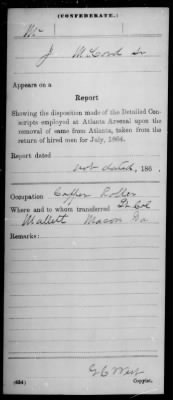 (CONFEDERATE.)
Mc
J McCord Sr
Appears on a
Report
Showing the disposition made of the Detailed Con-
scripts employed at Atlanta Arsenal upon the
removal of same from Atlanta, taken from the
return of hired men for July, 1864.
Report dated
not dated, 186 .
Occupation Copper Roller
Where and to whom transferred Lt Col
Mallett Macon Ga
Remarks:
G C West
(654) Copyist.